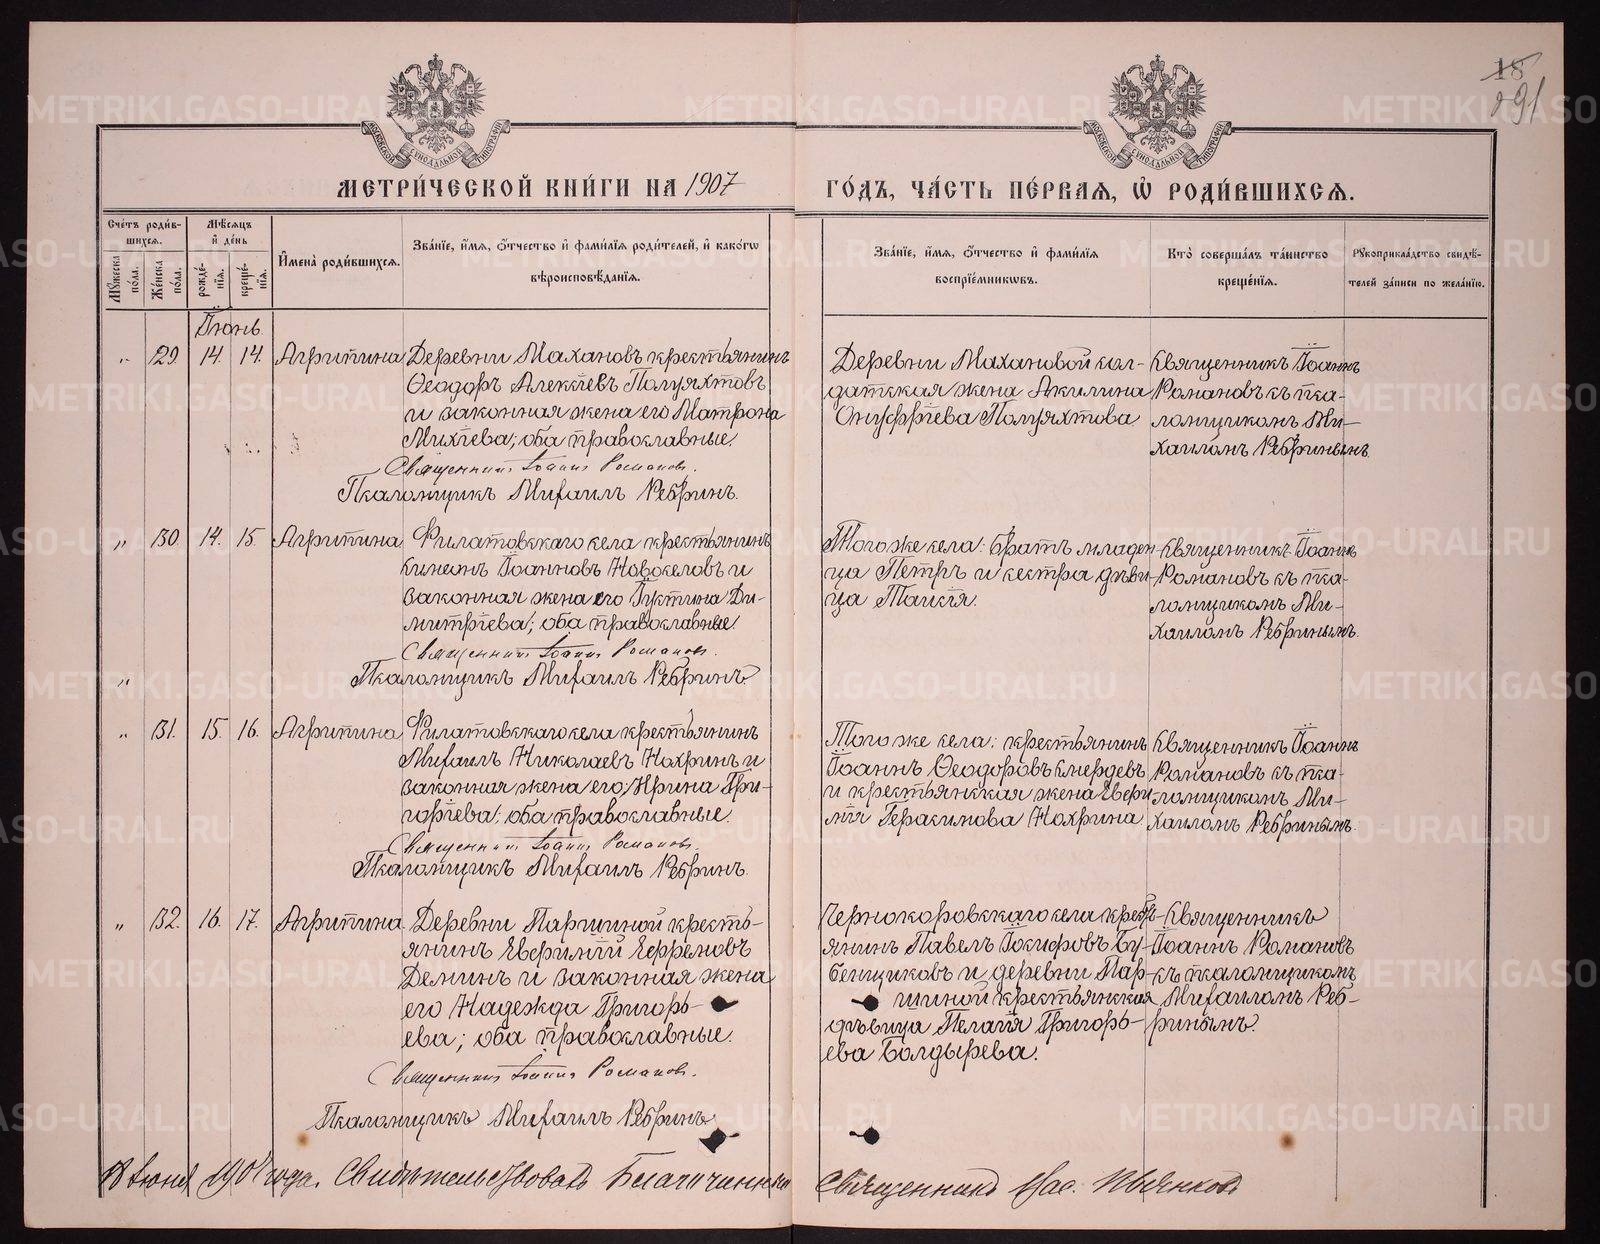 18
291
МОСКОВСКОЙ СѴНОДАЛЬНОЙ ТИПОГРАФІИ
МОСКОВСКОЙ СѴНОДАЛЬНОЙ ТИПОГРАФІИ
МЕТРИ́ЧЕСКОЙ КНИ́ГИ НА 1907
ГО́ДЪ, ЧА́СТЬ ПЕ́РВАѦ, Ѡ҆ РОДИ́ВШИХСѦ.
Сче́тъ роди́в-
шихсѧ.
Мꙋ́жеска по́ла.
Же́нска по́ла.
Мѣ́сѧцъ
и҆ де́нь
рожде́-
нїѧ.
креще́-
нїѧ.
И҆мена̀ роди́вшихсѧ.
Зва́нїе, и҆́мѧ, ѻ҆́тчество и҆ фами́лїѧ роди́телей, и҆ како́гѡ
вѣроисповѣ́данїѧ.
Зва́нїе, и҆́мѧ, ѻ҆́тчество и҆ фами́лїѧ
воспрїе́мникѡвъ.
Кто̀ соверша́лъ та́инство
креще́нїѧ.
Рꙋкоприкла́дство свидѣ́-
телей за́писи по жела́нїю.
Іюнь.
„ 29 14. 14. Агрипина Деревни Махановъ крестьянинъ
Ѳеодоръ Алексіевъ Полуяхтовъ
и законная жена его Матрона
Михіева; оба православные.
Священникъ Іоаннъ Романовъ.
Псаломщикъ Михаилъ Ребринъ.
Деревни Махановой сол-
датская жена Акилина
Онуфріева Полуяхтова
Священникъ Іоаннъ
Романовъ съ пса-
ломщикомъ Ми-
хаиломъ Ребринымъ.
„ 30 14. 15. Агрипина Филатовскаго села крестьянинъ
Симеонъ Іоанновъ Новоселовъ и
законная жена его Іустина Ди-
митріева; оба православные.
Священникъ Іоаннъ Романовъ.
„ Псаломщикъ Михаилъ Ребринъ.
Того же села: братъ младен-
ца Петръ и сестра дѣви-
ца Таисія.
Священникъ Іоаннъ
Романовъ съ пса-
ломщикомъ Ми-
хаиломъ Ребринымъ.
„ 31. 15. 16. Агрипина Филатовскаго села крестьянинъ
Михаилъ Николаевъ Нохринъ и
законная жена его Ирина Гри-
горіева; оба православные.
Священникъ Іоаннъ Романовъ.
Псаломщикъ Михаилъ Ребринъ.
Того же села: крестьянинъ
Іоаннъ Ѳеодоровъ Смердевъ
и крестьянская жена Евфи-
мія Герасимова Нохрина
Священникъ Іоаннъ
Романовъ съ пса-
ломщикомъ Ми-
хаиломъ Ребринымъ.
„ 32. 16. 17. Агрипина. Деревни Паршиной кресть-
янинъ Евфимій Ефремовъ
Деминъ и законная жена
его Надежда Григорь-
ева; оба православные.
Священникъ Іоаннъ Романовъ.
Псаломщикъ Михаилъ Ребринъ
Чернокоровскаго села кресть-
янинъ Павелъ Іосифовъ Бу-
бенщиковъ и деревни Пар-
шиной крестьянская
дѣвица Пелагія Григорь-
ева Болдырева.
Священникъ
Іоаннъ Романовъ
съ псаломщикомъ
Михаиломъ Реб-
ринымъ.
Іюня 1907 года. Свидѣтельствовалъ Благочинный
Священникъ Пьянковъ
METRIKI.GASO-URAL.RU